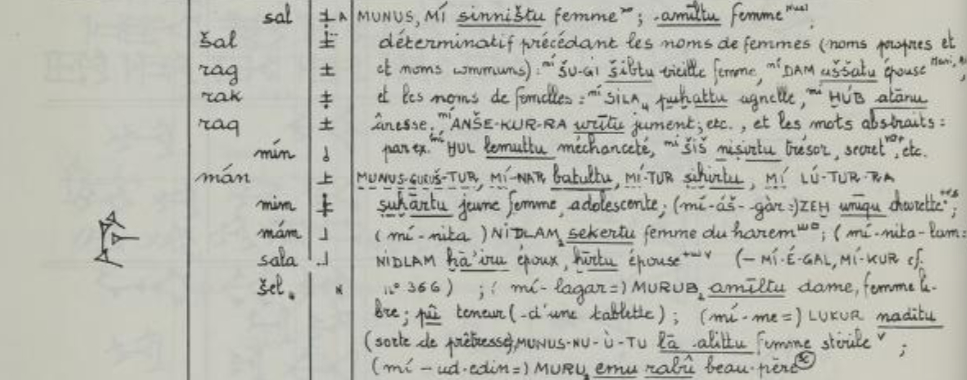 sal ± A MUNUS, MÍ sinništu femme ; amīltu femme
šal ± déterminatif précédant les noms de femmes (noms propres et
rag ± et noms communs) : mí ŠU-GI šībtu vieille femme, mí DAM aššatu épouse
rak ‡ et les noms de femelles : mí SILA₄ puhattu agnelle, mí HÚB atānu
raq ± ânesse, mí ANŠE-KUR-RA urītu jument, etc., et les mots abstraits :
mín par ex. mí HUL lemuttu méchanceté, mí ŠIŠ niṣirtu trésor, secret, etc.
mán MUNUS-GURUŠ-TUR, MÍ-NAR batultu, MÍ-TUR ṣihirtu, MÍ LÚ-TUR-RA
mim ṣuhārtu jeune femme, adolescente ; (mí-áš-gàr=) ZEH unīqu chevrette ;
mám (mí-nita) NIDLAM, sekertu femme du harem ; (mí-nita-lam=
sala NIDLAM hā'iru époux, hīrtu épouse (-MÍ-É-GAL, MÍ-KUR cf.
šel₄ x n° 366) ; (mí-lagar=) MURUB₂ amīltu dame, femme li-
bre ; pû teneur (-d'une tablette) ; (mí-me=) LUKUR nadītu
(sorte de prêtresse), MUNUS-NU-Ù-TU lā ālittu femme stérile ;
(mí-ud-edin=) MURU₄ emu rabû beau-père